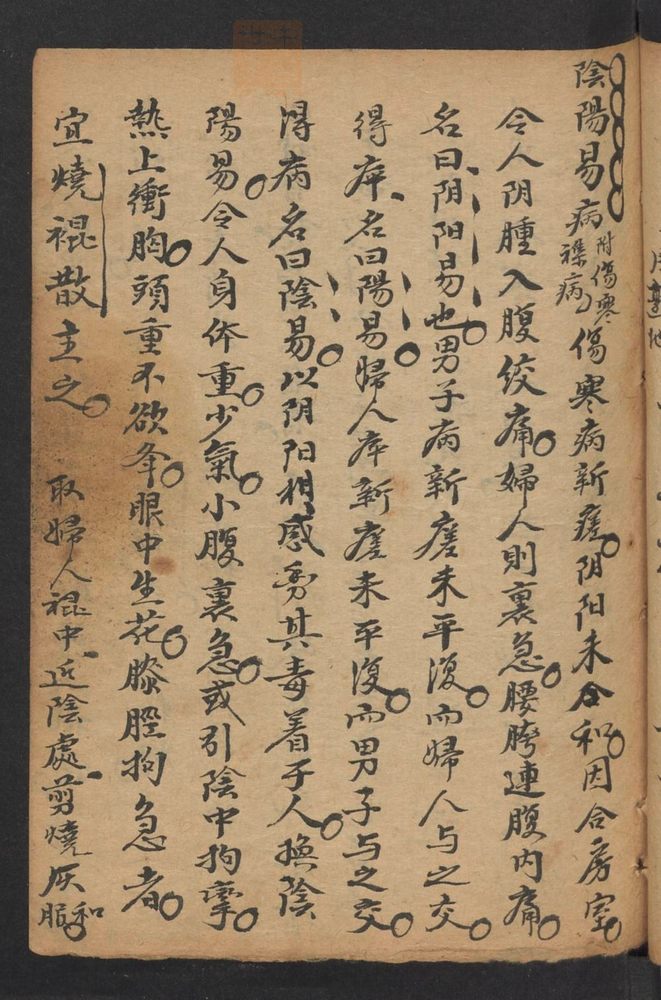 陰陽易病附傷寒襍病傷寒病新瘥阴阳未合和因合房室
令人阴腫入腹绞痛婦人則裏急腰胯連腹内痛
名曰阴阳易也男子病新瘥未平復而婦人与之交
得病名曰陽易婦人病新瘥未平復而男子与之交
得病名曰陰易以阴阳相感動其毒着于人換陰
陽易令人身体重少氣小腹裏急或引陰中拘攣
熱上衝胸頭重不欲牟眼中生花膝脛拘急者
宜燒裩散主之 取婦人裩中近陰處剪燒灰和服